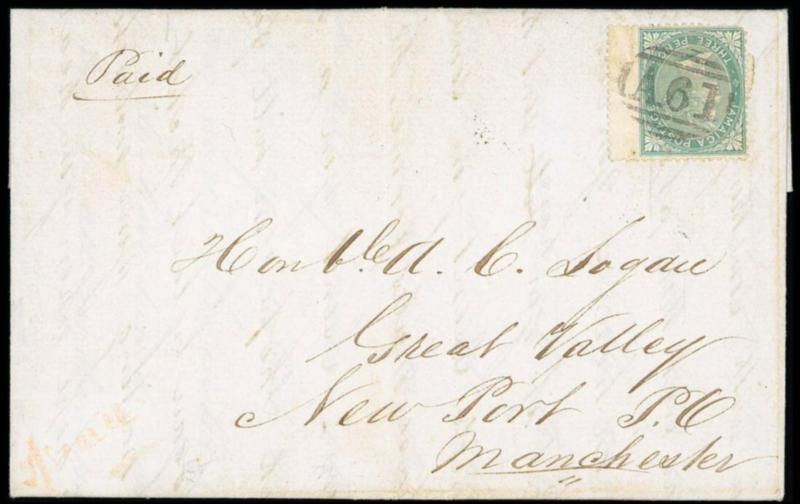 Paid
THREE PENCE
A61
JAMAICA POSTAGE
Honble A. C. Logan
Great Valley
New Port P.O
Manchester